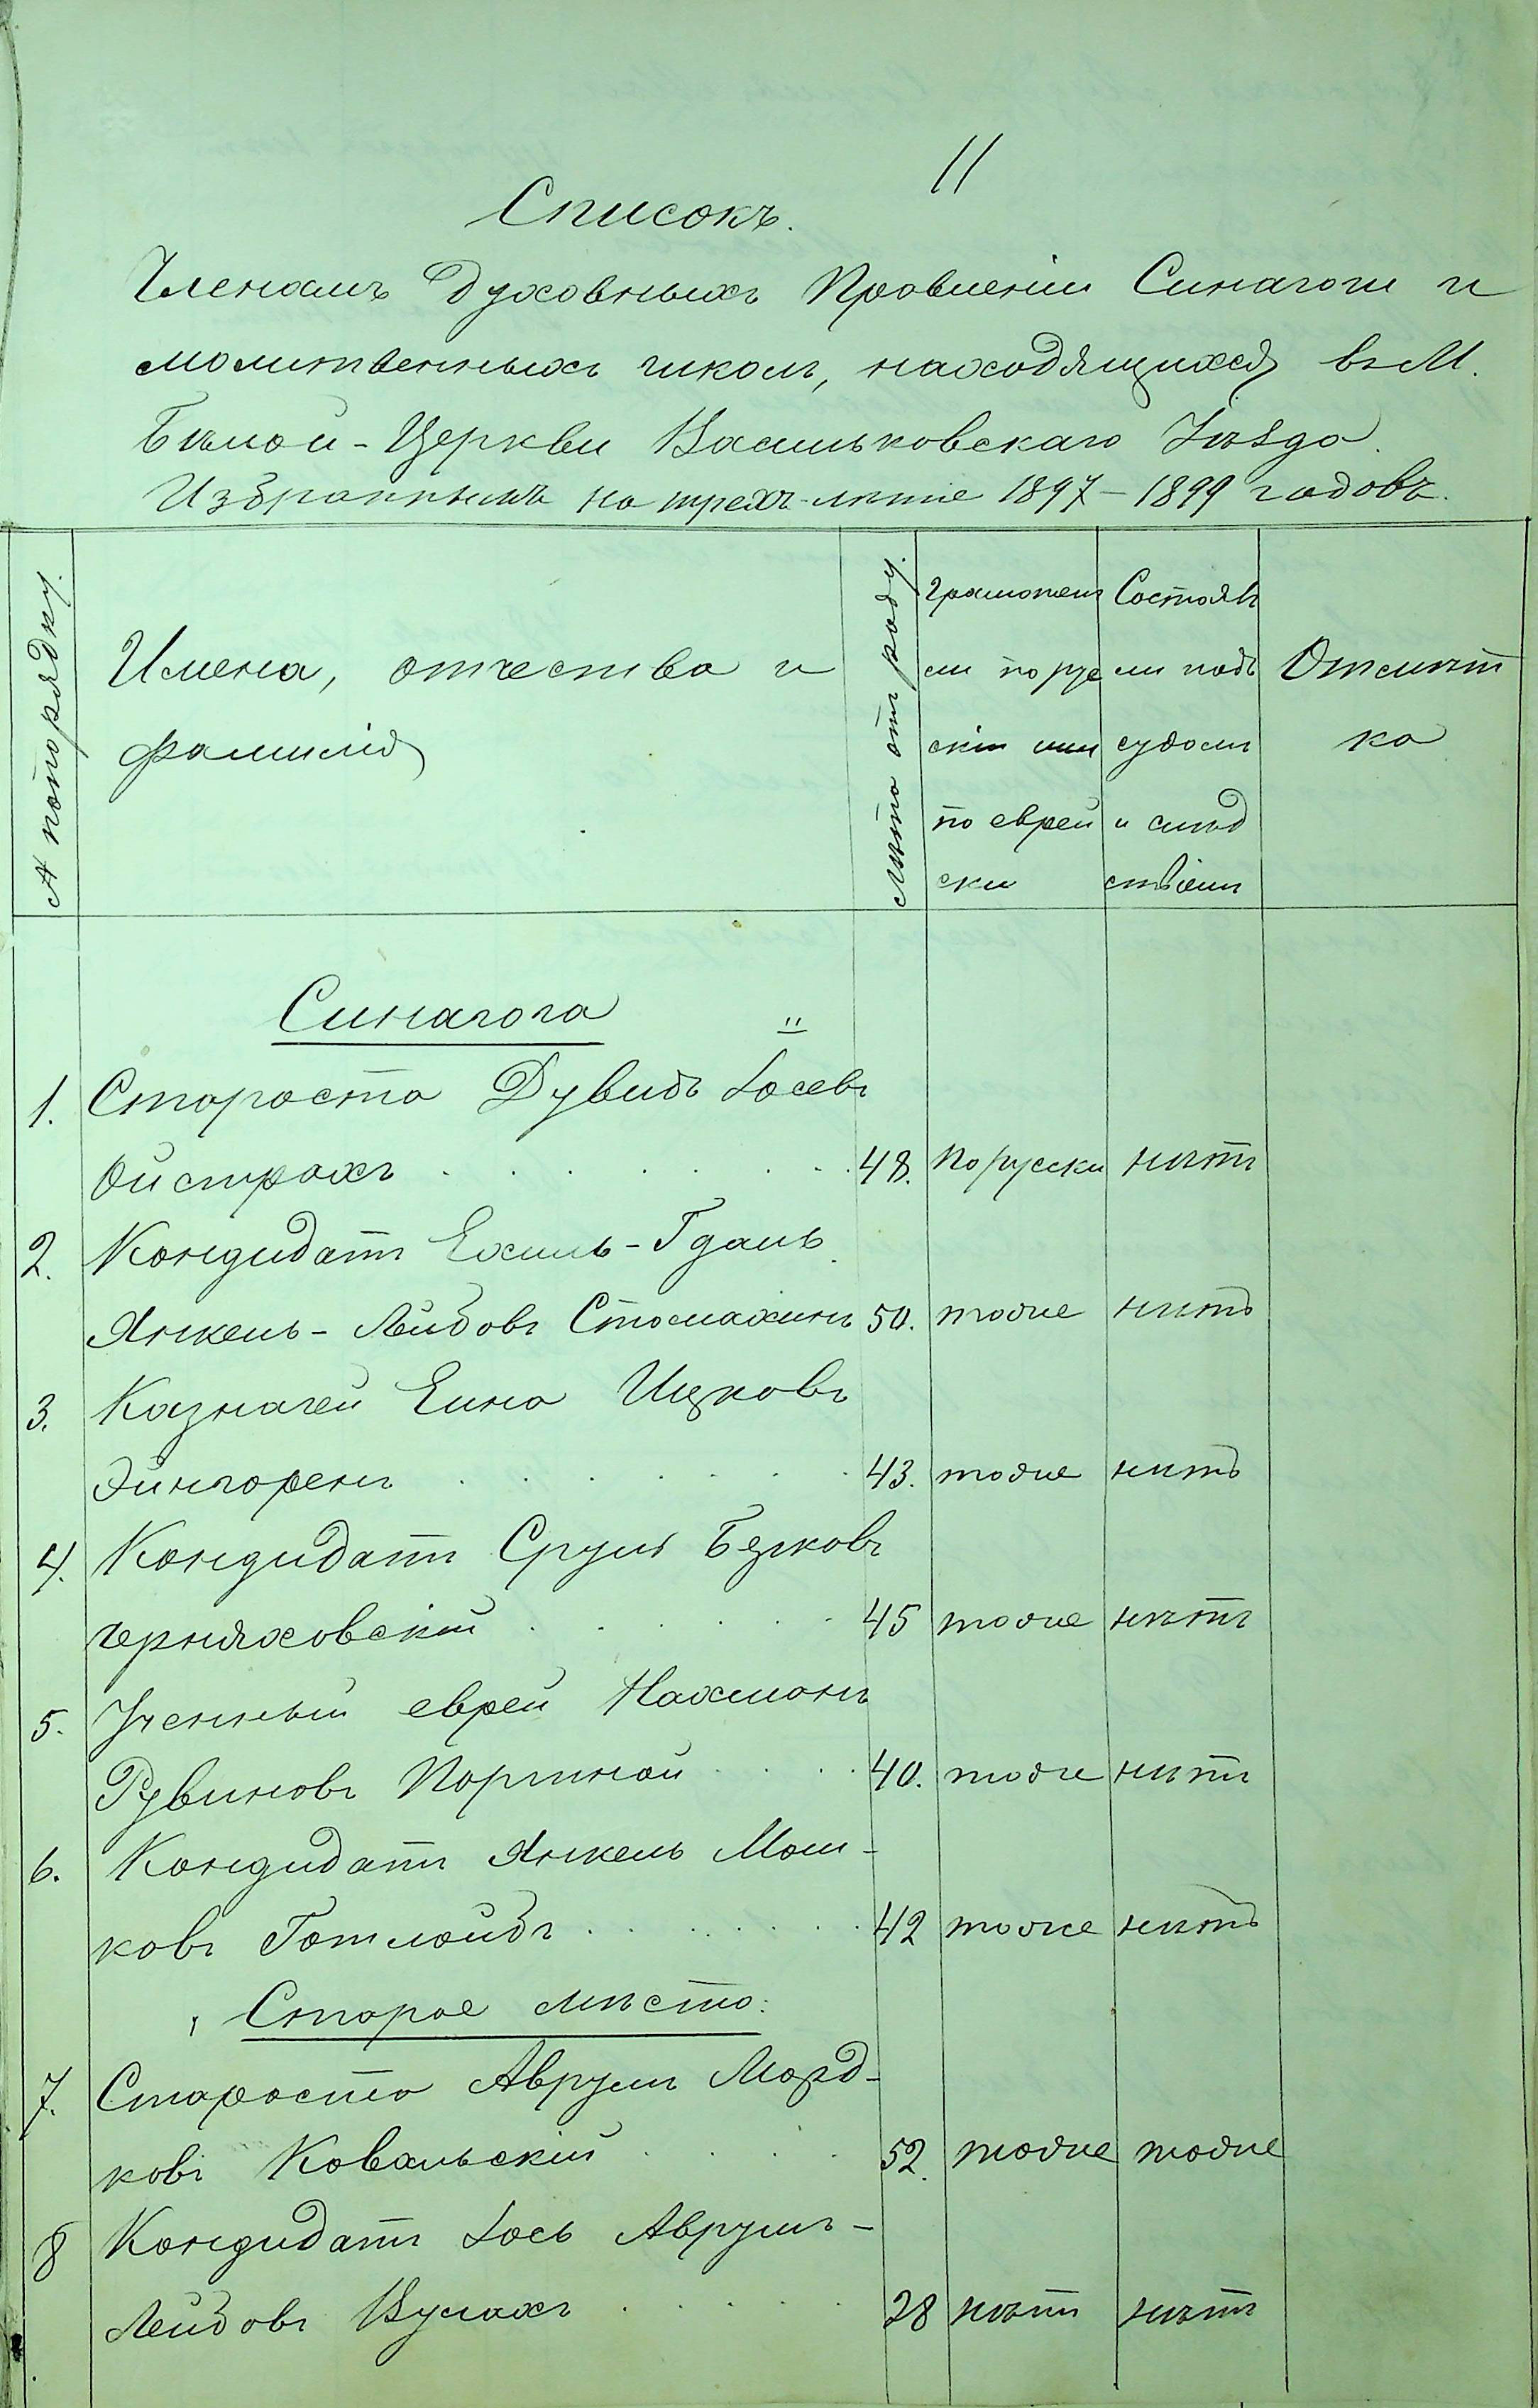 11
Списокъ.
Членамъ Духовныхъ Правленіи Синагоги и
молитвенныхъ школъ, находящихся въ М.
Бѣлой-Церкви Васильковскаго Уѣзда.
Избраннымъ на трехъ-лѣтіе 1897-1899 годовъ.
№ по порядку.
Имена, отчества и
фамилія
Лѣта отъ роду.
Грамотенъ
ли по рус
скіи или
по еврей
ски
Состоялъ
ли подъ
судомъ
и слѣд
ствіемъ
Отмѣт
ка
Синагога "
1. Староста Дувидъ Іосевъ
Ойстрахъ 48. по русски нѣтъ
2. Кандидатъ Ехиль-Гдаль
Янкель-Лейбовъ Стомахинъ 50. тоже нѣтъ
3. Казначей Еина Ицковъ
Эйнгоренъ 43. тоже нѣтъ
4. Кандидатъ Сруль Берковъ
Черняховскій 45 тоже нѣтъ
5. Ученный еврей Нахманъ
Рувиновъ Портной 40. тоже нѣтъ
6. Кандидатъ Янкель Мош-
ковъ Готлойбъ 42 тоже нѣтъ
Старое мѣсто:
7. Староста АврумъМорд-
ковъ Ковальскій 52. тоже тоже
8 Кандидатъ Іось Аврумъ-
Лейбовъ Вулахъ 28 нѣтъ нѣтъ